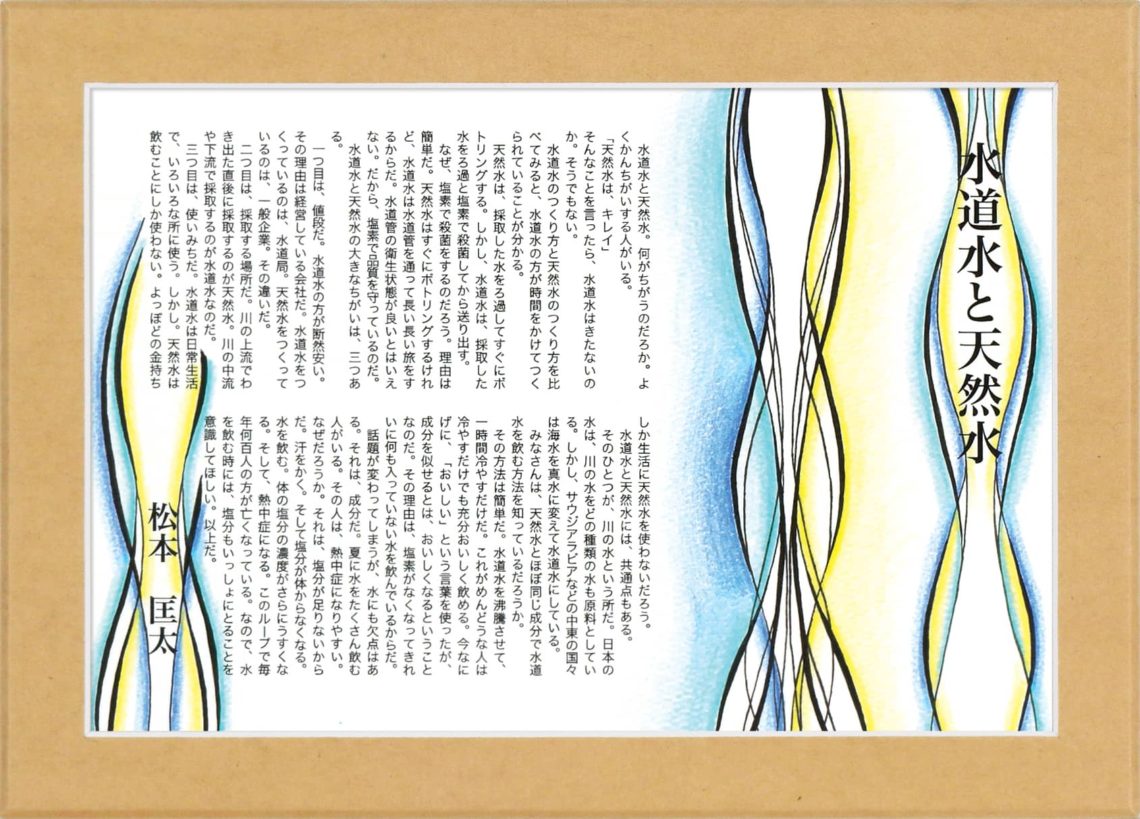 水道水と天然水
水道水と天然水。何がちがうのだろうか。よ
くかんちがいする人がいる。
「天然水は、キレイ」
そんなことを言ったら、水道水はきたないの
か。そうでもない。
水道水のつくり方と天然水のつくり方を比
べてみると、水道水の方が時間をかけてつく
られていることが分かる。
天然水は、採取した水をろ過してすぐにボ
トリングする。しかし、水道水は、採取した
水をろ過と塩素で殺菌してから送り出す。
なぜ、塩素で殺菌をするのだろう。理由は
簡単だ。天然水はすぐにボトリングするけれ
ど、水道水は水道管を通って長い長い旅をす
るからだ。水道管の衛生状態が良いとはいえ
ない。だから、塩素で品質を守っているのだ。
水道水と天然水の大きなちがいは、三つあ
る。
一つ目は、値段だ。水道水の方が断然安い。
その理由は経営している会社だ。水道水をつ
くっているのは、水道局。天然水をつくって
いるのは、一般企業。その違いだ。
二つ目は、採取する場所だ。川の上流でわ
き出た直後に採取するのが天然水。川の中流
や下流で採取するのが水道水なのだ。
三つ目は、使いみちだ。水道水は日常生活
で、いろいろな所に使う。しかし、天然水は
飲むことにしか使わない。よっぽどの金持ち
しか生活に天然水を使わないだろう。
水道水と天然水には、共通点もある。
そのひとつが、川の水という所だ。日本の
水は、川の水をどの種類の水も原料としてい
る。しかし、サウジアラビアなどの中東の国々
は海水を真水に変えて水道水にしている。
みなさんは、天然水とほぼ同じ成分で水道
水を飲む方法を知っているだろうか。
その方法は簡単だ。水道水を沸騰させて、
一時間冷やすだけだ。これがめんどうな人は
冷やすだけでも充分おいしく飲める。今なに
げに、「おいしい」という言葉を使ったが、
成分を似せるとは、おいしくなるということ
なのだ。その理由は、塩素がなくなってきれ
いに何も入っていない水を飲んでいるからだ。
話題が変わってしまうが、水にも欠点はあ
る。それは、成分だ。夏に水をたくさん飲む
人がいる。その人は、熱中症になりやすい。
なぜだろうか。それは、塩分が足りないから
だ。汗をかく。そして塩分が体からなくなる。
水を飲む。体の塩分の濃度がさらにうすくな
る。そして、熱中症になる。このループで毎
年何百人の方が亡くなっている。なので、水
を飲む時には、塩分もいっしょにとることを
意識してほしい。以上だ。
松本 匡太